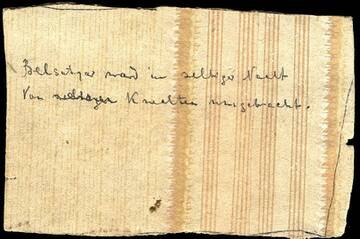 Belsatzar ward in selbiger Nacht
Von Knechten umgebracht.